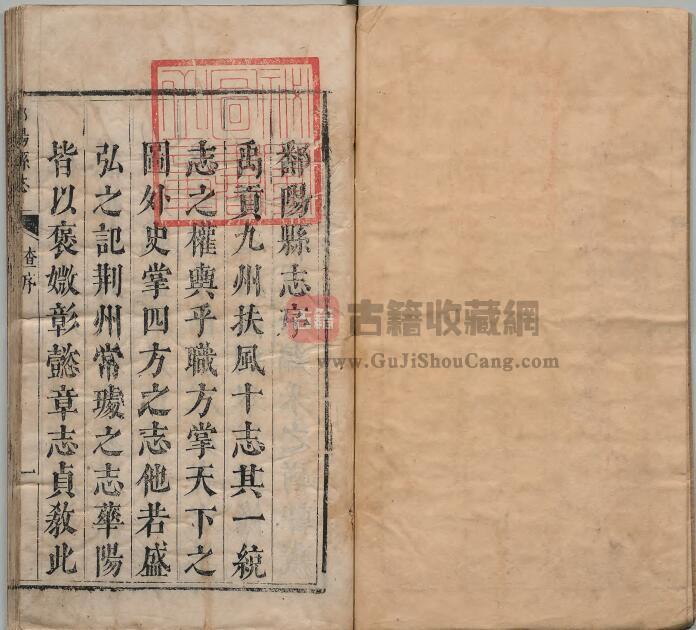 鄱陽縣志序
禹貢九州扶風十志其一統
志之權輿乎職方掌天下之
圖外史掌四方之志他若盛
弘之記荆州常璩之志華陽
皆以褒媺彰懿章志貞教此
陽縣志
查序
一
古籍
古籍收藏網
www.GuJiShouCang.com